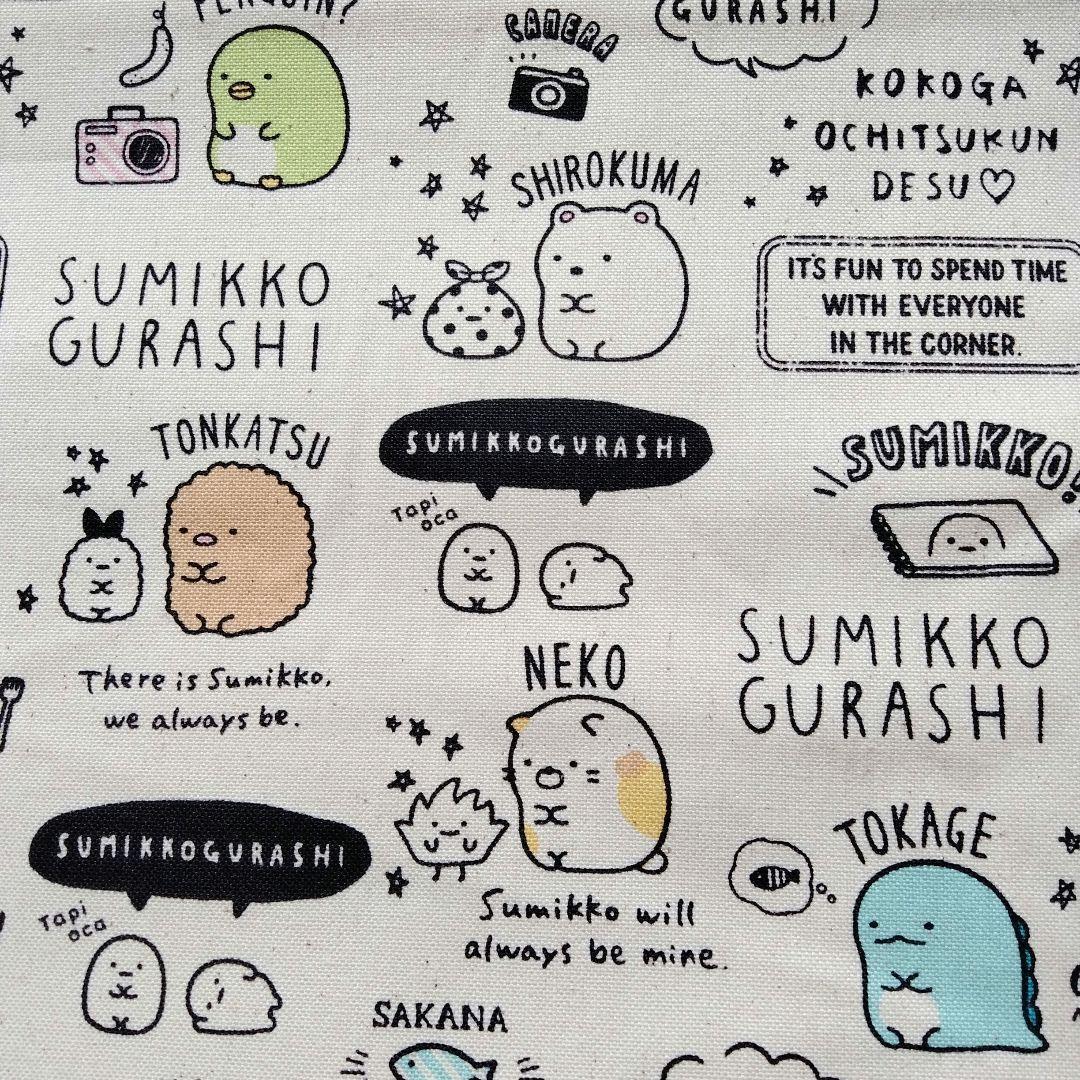 PENGUIN?
CAMERA
GURASHI
KOKOGA
OCHITSUKUN
DESU♡
SHIROKUMA
SUMIKKO
GURASHI
IT'S FUN TO SPEND TIME
WITH EVERYONE
IN THE CORNER.
TONKATSU
SUMIKKOGURASHI
SUMIKKO!
Tapi
oca
There is Sumikko,
we always be.
NEKO
SUMIKKO
GURASHI
SUMIKKOGURASHI
TOKAGE
Tapi
oca
Sumikko will
always be mine.
SAKANA